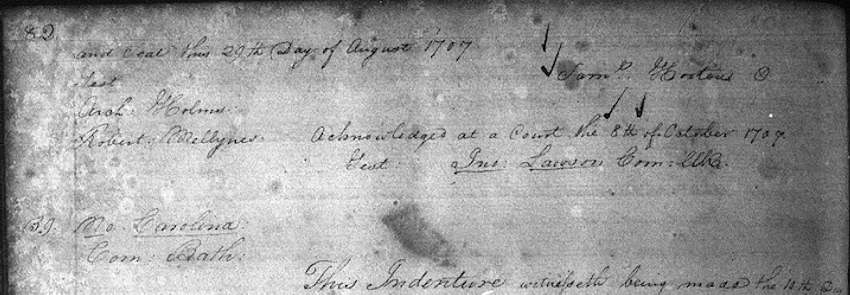 82
and Seal this 29th Day of August 1707
Test
Arch: Holms: Sam:ll Hortens O
Robert: Mellynes. Acknowledged at a Court the 8th of October 1707
Test: Jno: Lawson Com: Clk:
No: Carolina:
Com: Bath:
This Indenture witnesseth being made the 10th Day